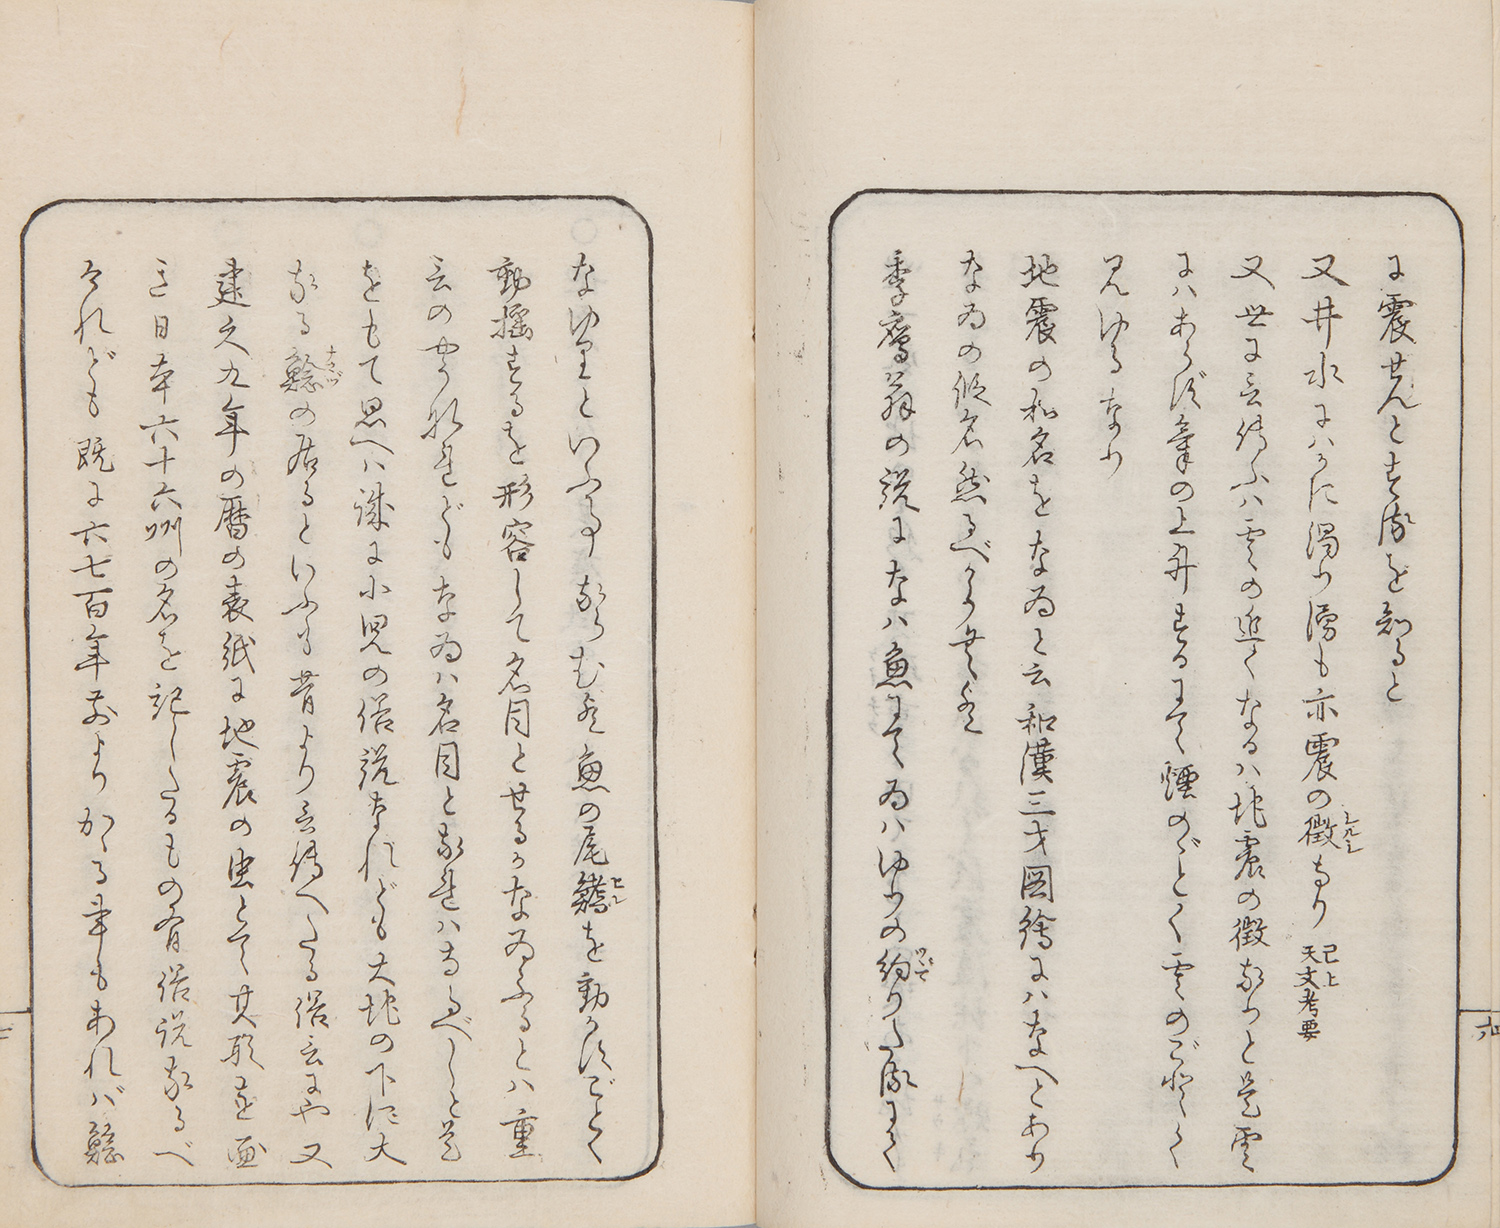 に震せんとするを知ると
又井水にハかに濁り湧も亦震の徴なり 已上天文考要
シルシ
又世に言伝ふハ雲の近くなるハ地震の徴なりと是雲
にハあらず気の上升するにて煙のごとく雲のごとく
見ゆるなり
地震の和名をなゐと云和漢三才図絵にハなへとあり
なゐの仮名然るべからむ
季鷹翁の説になハ魚にてゐハゆりの約りたるにて
なゆりといふ事ならむ是魚の尾鰭を動かすごとく
ヒレ
動揺するを形容して名目とせるかなゐふるとハ重
言のやうなれどもなゐハ名目となれハなるべしと是
をもて思へハ誠に小児の俗説なれども大地の下に大
なる鯰の居るといふも昔より言伝へたる俗言にや又
ナマヅ
建久九年の暦の表紙に地震の虫とて其形を画
き日本六十六州の名を記したるもの有俗説なるべ
けれども既に六七百年前よりかゝる事もあれバ鯰